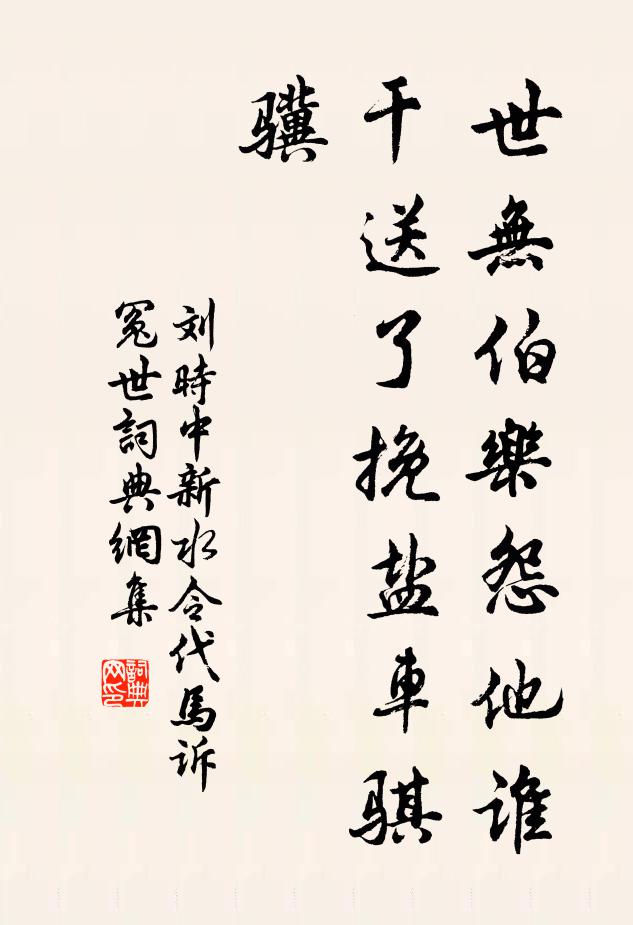 世無伯樂怨他誰
干送了挽盐車骐
骥
刘時中新水令代馬訴
冤世詞典網集
詞典网印